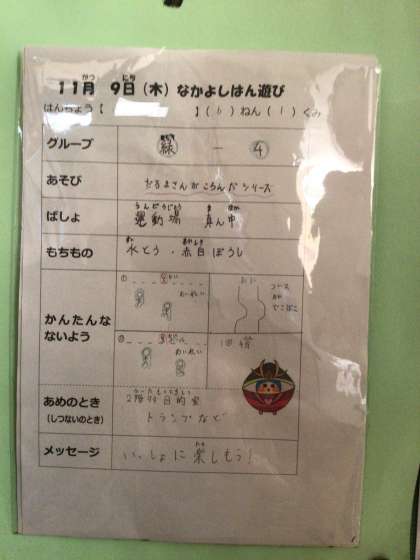 11月 9日(木)なかよしはん遊び
はんちょう【 】(6)ねん(1)くみ
グループ 緑 ー ④
あそび だるまさんがころんだシリーズ
ばしょ 運動場 真ん中
もちもの 水とう・赤白ぼうし
かんたんな
ないよう
① おに
② おに
コース
が
でこぼこ
あめのとき
(しつないのとき)
2階多目的室
トランプなど
メッセージ いっしょに楽しもう!